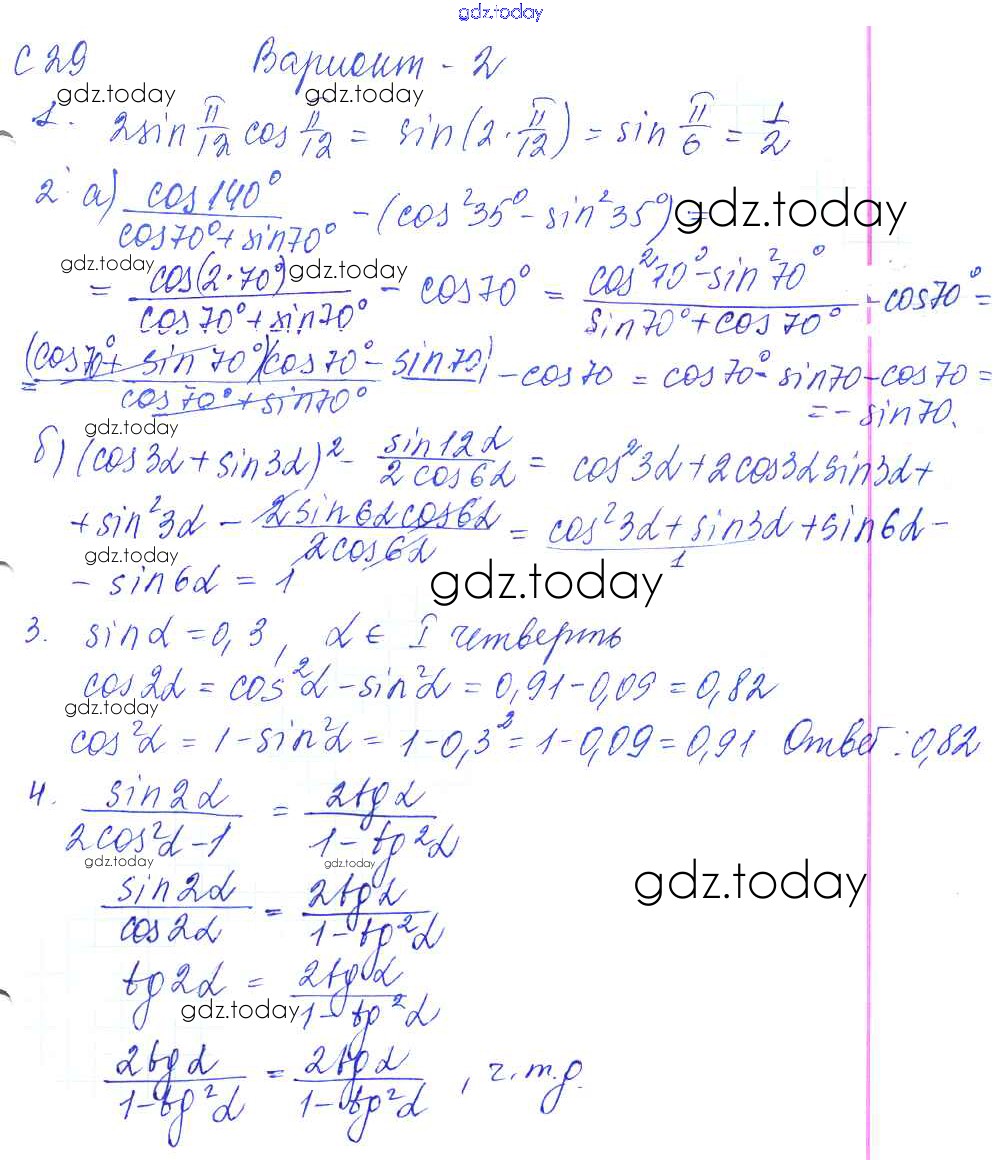 gdz.today
С 29 Вариант - 2
gdz.today gdz.today
1. 2sin π/12 cos π/12 = sin(2·π/12) = sin π/6 = 1/2
2. а) cos140°/(cos70°+sin70°) - (cos²35° - sin²35°) =
gdz.today
gdz.today gdz.today
= cos(2·70°)/(cos70°+sin70°) - cos70° = (cos²70°-sin²70°)/(sin70°+cos70°) - cos70° =
= (cos70°+sin70°)(cos70°-sin70)/(cos70°+sin70°) - cos70 = cos70° - sin70 - cos70 =
= - sin70.
gdz.today
б) (cos3α+sin3α)² - sin12α/2cos6α = cos²3α+2cos3αsin3α+
+ sin²3α - 2sin6αcos6α/2cos6α = cos²3α+sin3α+sin6α -
1
gdz.today
- sin6α = 1
gdz.today
3. sinα = 0,3, α ∈ I четверть
cos2α = cos²α - sin²α = 0,91 - 0,09 = 0,82
gdz.today
cos²α = 1 - sin²α = 1 - 0,3² = 1 - 0,09 = 0,91 Ответ: 0,82
4. sin2α/(2cos²α-1) = 2tgα/(1-tg²α)
gdz.today gdz.today
gdz.today
sin2α/cos2α = 2tgα/(1-tg²α)
tg2α = 2tgα/(1-tg²α)
gdz.today
2tgα/(1-tg²α) = 2tgα/(1-tg²α), ч.т.д.